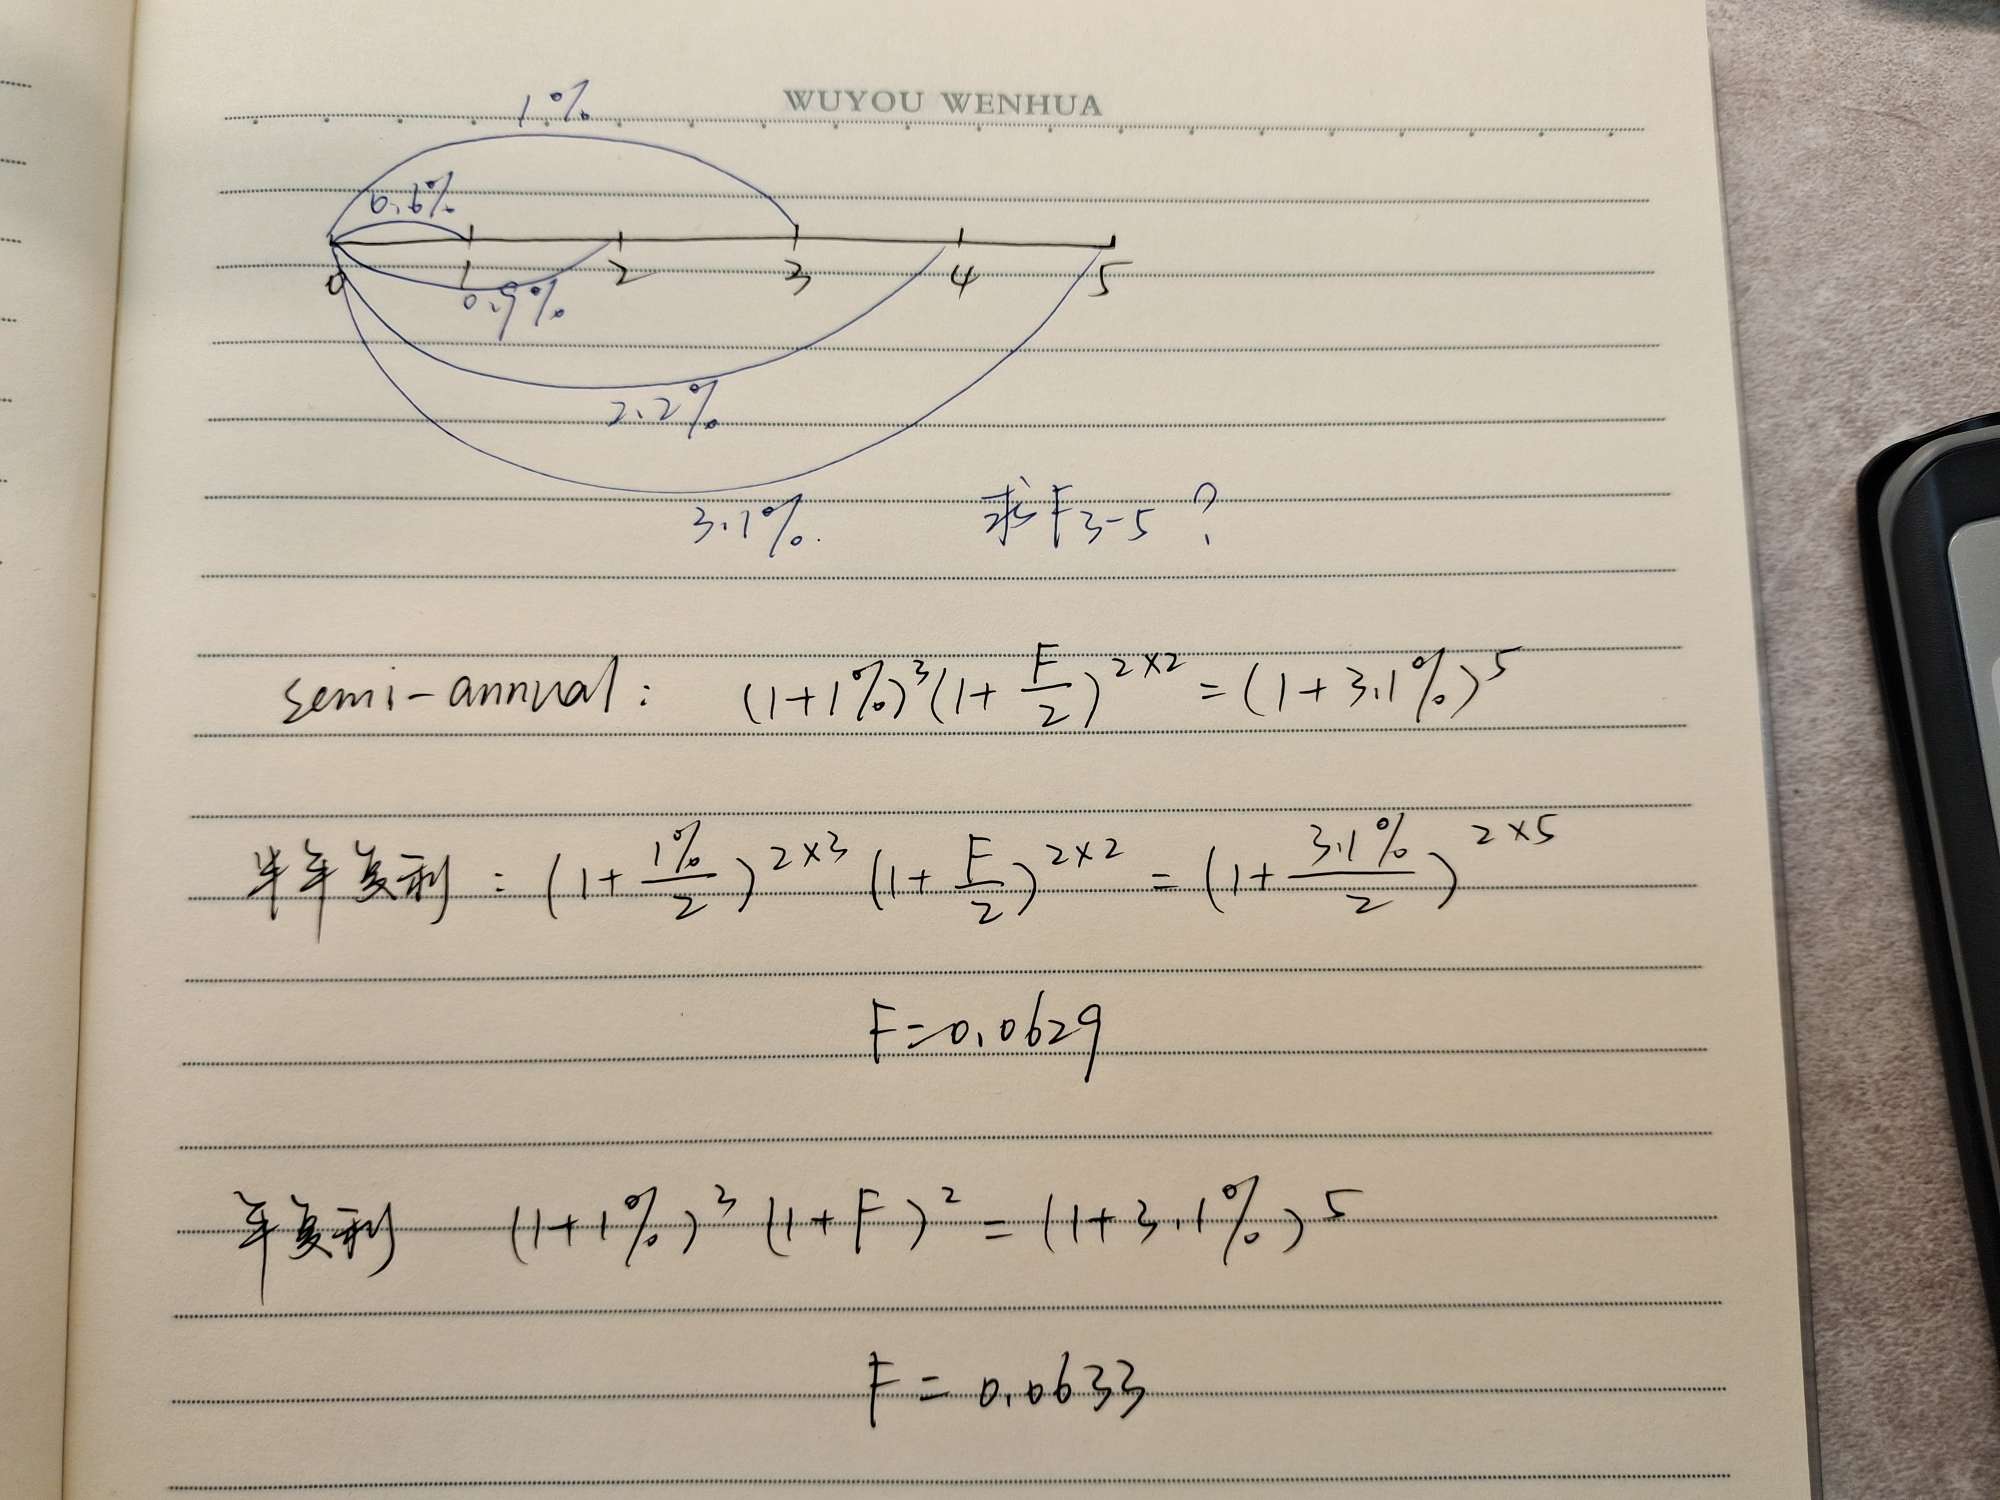 WUYOU WENHUA
1%
0.6%
0 1 2 3 4 5
0.9%
2.2%
3.1%. 求F3-5?
semi-annual: (1+1%)^3(1+F/2)^2×2=(1+3.1%)^5
半年复利: (1+1%/2)^2×3 (1+F/2)^2×2 = (1+3.1%/2)^2×5
F=0.0629
年复利 (1+1%)^3 (1+F)^2 = (1+3.1%)^5
F=0.0633